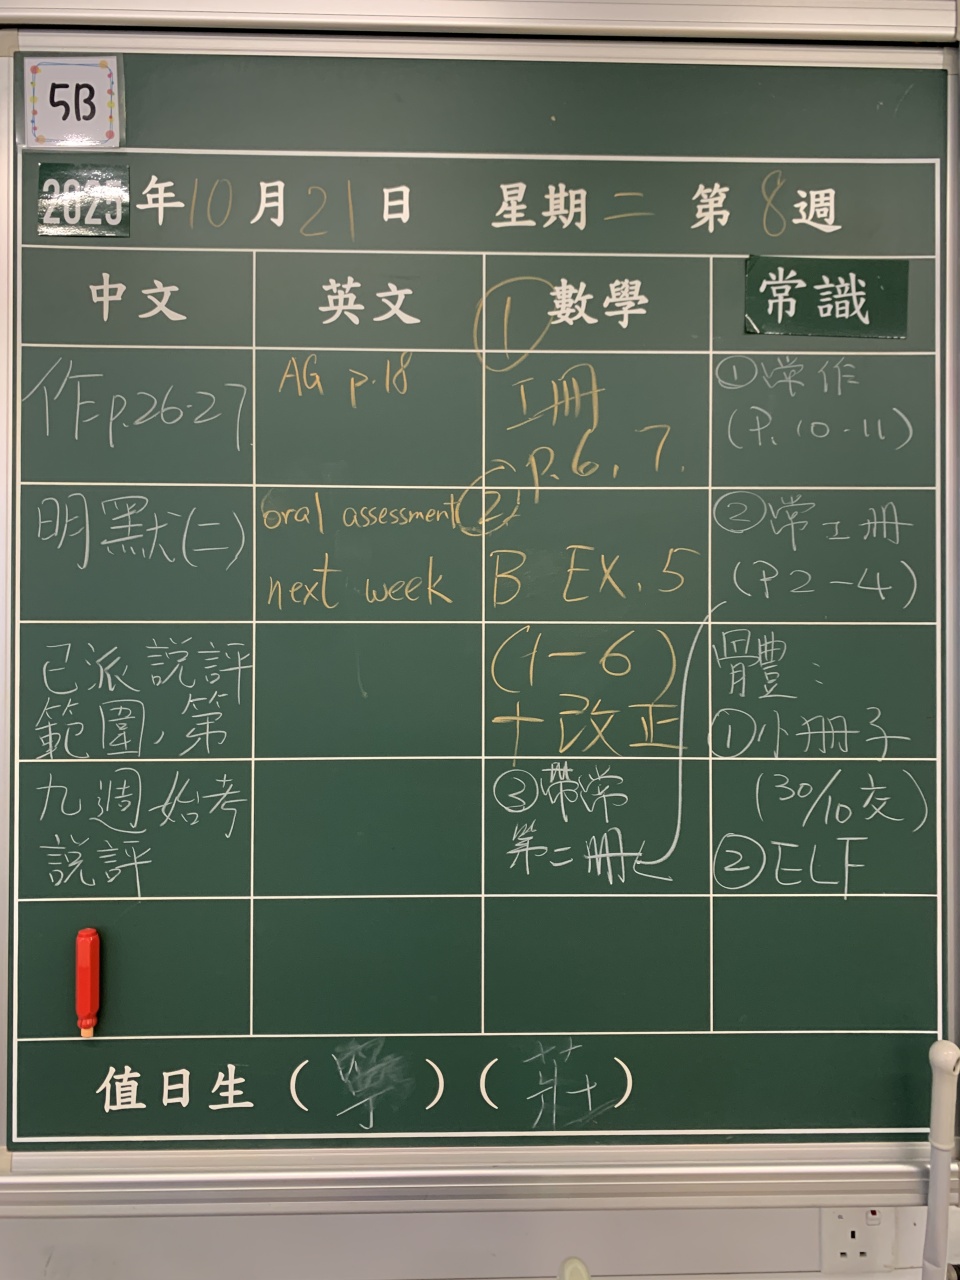 5B
2025年10月21日 星期二 第8週
中文 英文 數學 常識
作p.26-27
明默(二)
已派說評
範圍,第
九週始考
說評
AG p.18
oral assessment
next week
①
工冊
p.6, 7.
②
B EX.5
(1-6)
+改正
③帶常
第二冊
①常作
(P.10-11)
②常工冊
(P2-4)
體:
①小冊子
(30/10交)
②ELF
值日生( )(莊)